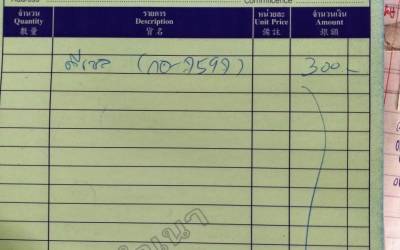 จำนวน รายการ หน่วยละ จำนวนเงิน
Quantity Description Unit Price Amount
數量 貨名 備註 銀額
ดีเซล 300.-
สำเนา